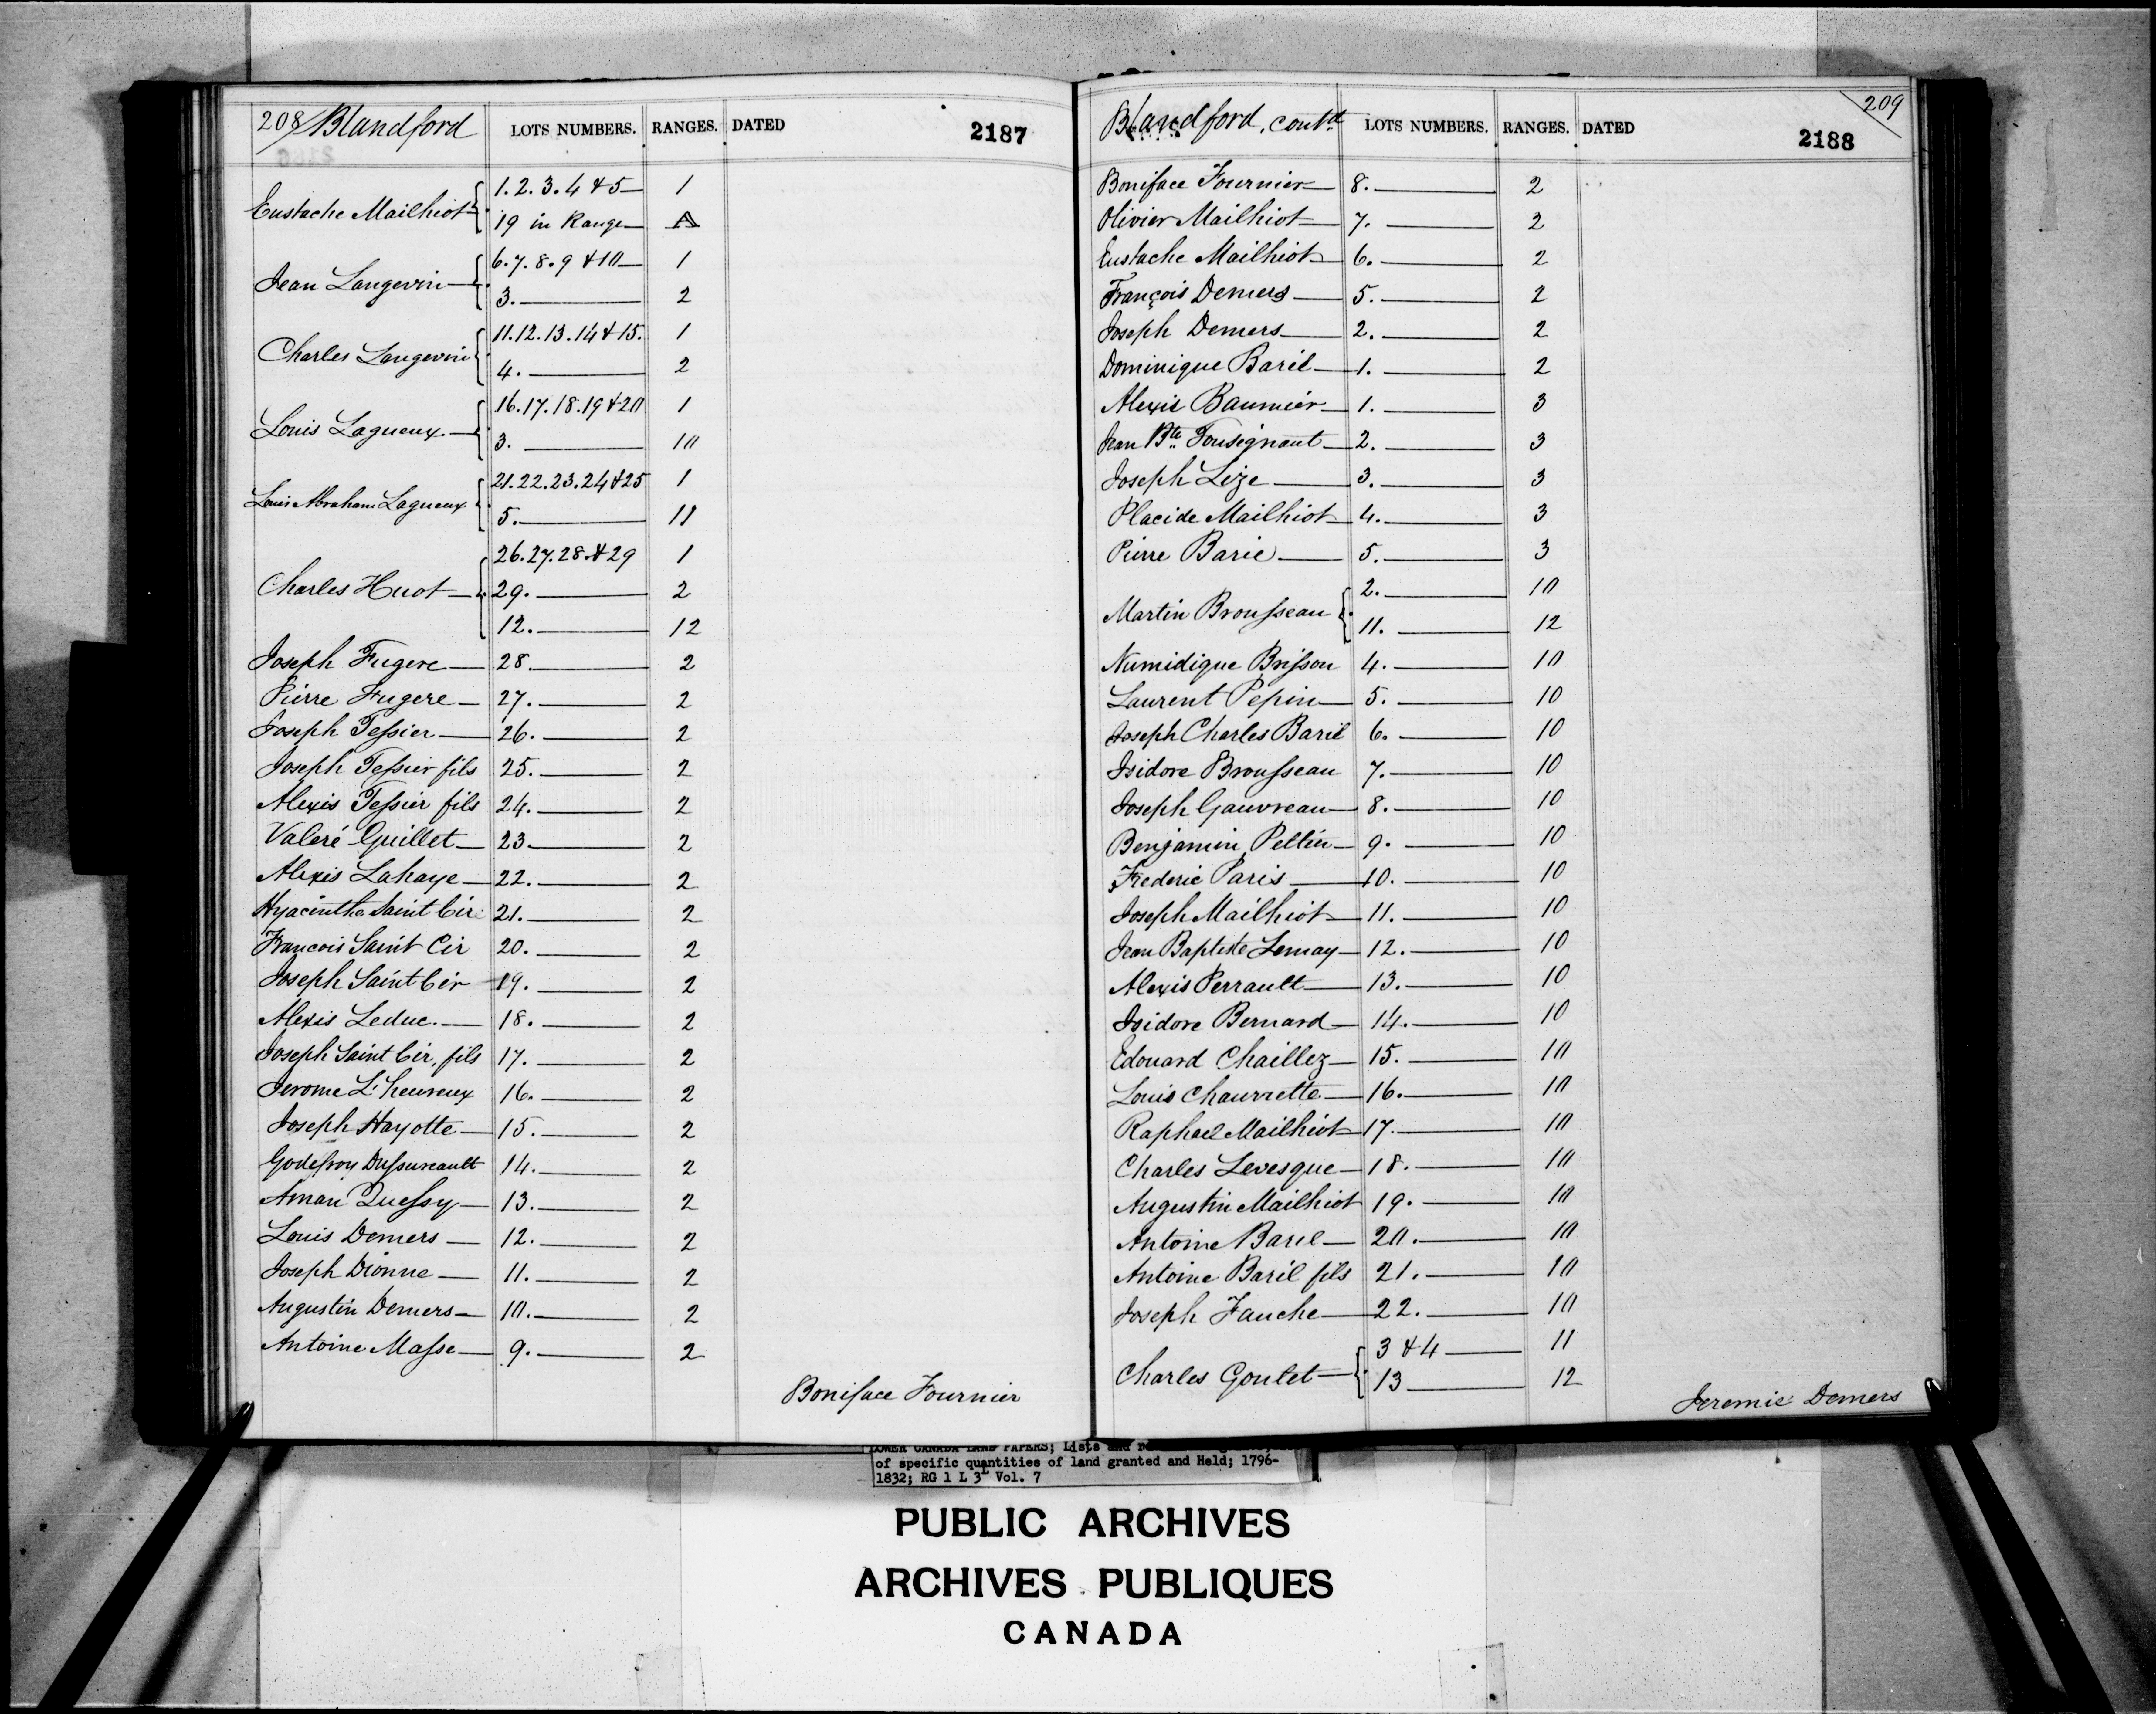 208 Blandford LOTS NUMBERS. RANGES. DATED 2187
Eustache Mailhiot 1.2.3.4 & 5 1
19 in Range A
Jean Langevin 6.7.8.9 & 10 1
3. 2
Charles Langevin 11.12.13.14 & 15. 1
4. 2
Louis Lagueux. 16.17.18.19 & 20 1
3. 10
Louis Abraham Lagueux 21.22.23.24 & 25 1
5. 11
Charles Huot 26.27.28. & 29 1
29. 2
12. 12
Joseph Fugere 28. 2
Pierre Fugere 27. 2
Joseph Tessier 26. 2
Joseph Tessier fils 25. 2
Alexis Tessier fils 24. 2
Valeré Guillet 23. 2
Alexis Lahaye 22. 2
Hyacinthe Saint Cir 21. 2
Francois Saint Cir 20. 2
Joseph Saint Cir 19. 2
Alexis Leduc. 18. 2
Joseph Saint Cir, fils 17. 2
Jerome L'heureux 16. 2
Joseph Hayotte 15. 2
Godefroy Dussureault 14. 2
Aman Quessy 13. 2
Louis Demers 12. 2
Joseph Dionne 11. 2
Augustin Demers 10. 2
Antoine Masse 9. 2
Boniface Fournier
Blandford, contd LOTS NUMBERS. RANGES. DATED 209
2188
Boniface Fournier 8. 2
Olivier Mailhiot 7. 2
Eustache Mailhiot 6. 2
François Demers 5. 2
Joseph Demers 2. 2
Dominique Baril 1. 2
Alexis Baumier 1. 3
Jean Bte Tousignant 2. 3
Joseph Lize 3. 3
Placide Mailhiot 4. 3
Pierre Barie 5. 3
Martin Brousseau 2. 10
11. 12
Numidique Brisson 4. 10
Laurent Pepin 5. 10
Joseph Charles Baril 6. 10
Isidore Brousseau 7. 10
Joseph Gauvreau 8. 10
Benjamin Peltier 9. 10
Frederic Paris 10. 10
Joseph Mailhiot 11. 10
Jean Baptiste Lemay 12. 10
Alexis Perrault 13. 10
Isidore Bernard 14. 10
Edouard Chaillez 15. 10
Louis Chaurette 16. 10
Raphael Mailhiot 17. 10
Charles Levesque 18. 10
Augustin Mailhiot 19. 10
Antoine Baril 20. 10
Antoine Baril fils 21. 10
Joseph Fauche 22. 10
Charles Goulet 3 & 4 11
13 12
Jeremie Demers
LOWER CANADA LAND PAPERS; Lists and
of specific quantities of land granted and Held; 1796-
1832; RG 1 L 3L Vol. 7
PUBLIC ARCHIVES
ARCHIVES PUBLIQUES
CANADA